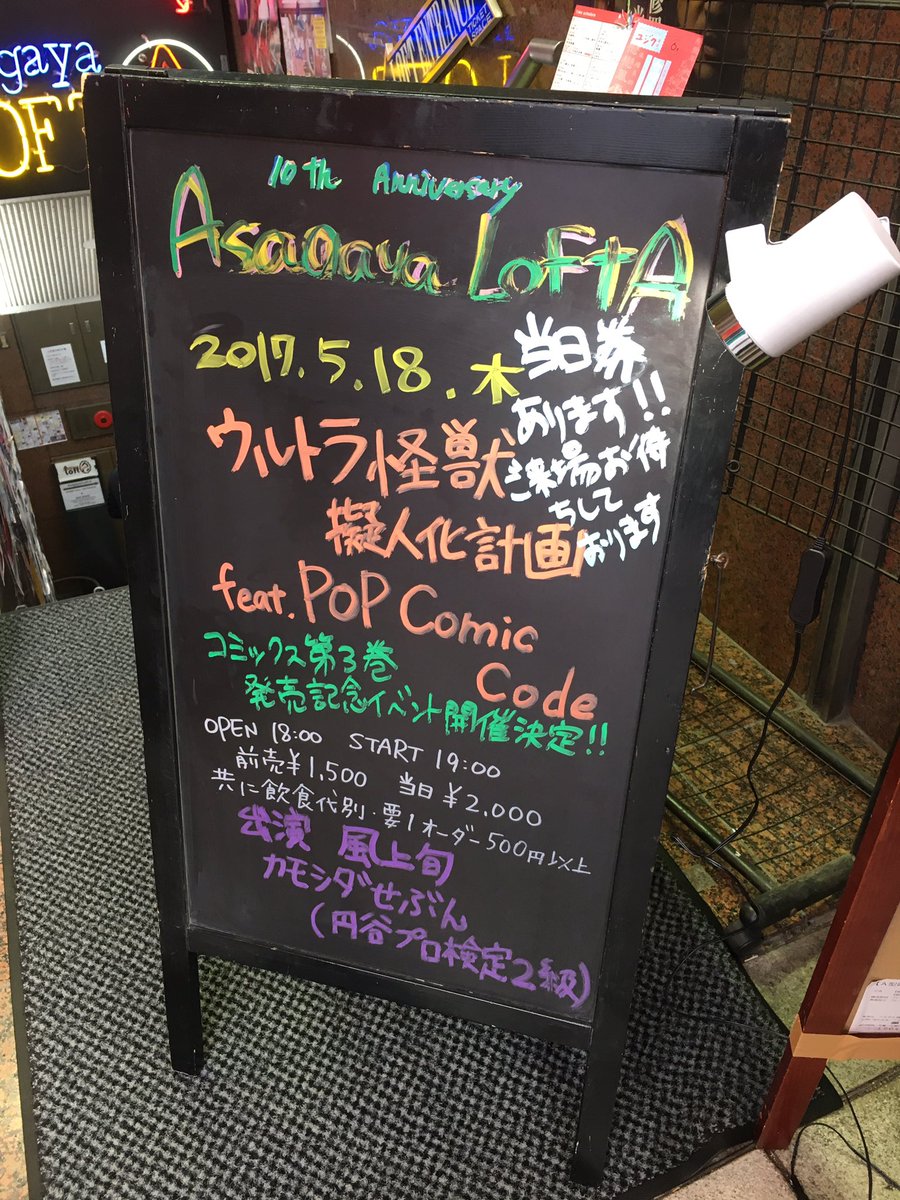 gaya
OFT
10th Anniversary
Asagaya LoFtA
2017.5.18.木
当日券
あります!!
ご来場お待
ちして
おります
ウルトラ怪獣
擬人化計画
feat. POP Comic
Code
コミックス第3巻
発売記念イベント開催決定!!
OPEN 18:00 START 19:00
前売¥1,500 当日¥2,000
共に飲食代別・要1オーダー500円以上
出演 風上旬
カモシダせぶん
(円谷プロ検定2級)